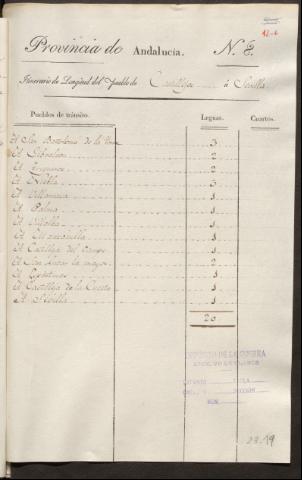 12-6
Provincia de Andalucía. N. 2.
Itinerario de Longitud del Pueblo de Castillejos á Sevilla
Pueblos de tránsito. Leguas. Cuartos.
A San Bartolomé de la Torre 3
A Gibraleon 2
A Trigueros 2
A Niebla 3
A Villarrasa 1
A Palma 1
A Manzanilla 1
A Castilleja del Campo 1
A San Lucar la mayor 2
A Espartinas 1
A Castilleja de la Cuesta 1
A Sevilla 1
20
DEPOSITO DE LA GUERRA